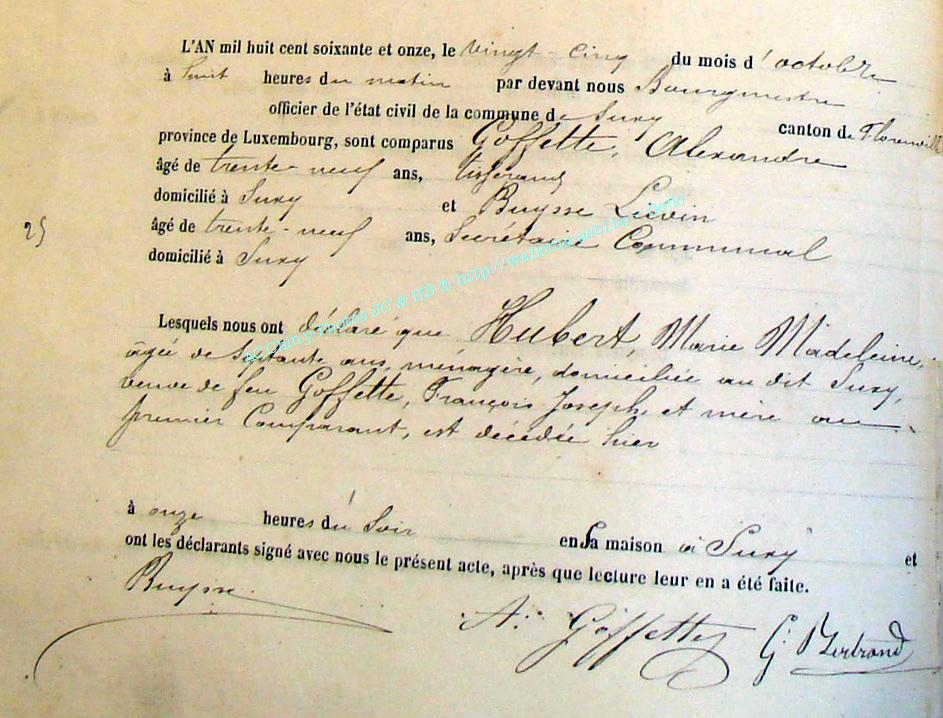 L'AN mil huit cent soixante et onze, le vingt-cinq du mois d'octobre
à huit heures du matin par devant nous Bourgmestre
officier de l'état civil de la commune de Suxy canton de Florenville
province de Luxembourg, sont comparus Goffette, Alexandre
âgé de trente-neuf ans, tisserand
domicilié à Suxy et Buysse Lievin
âgé de trente-neuf ans, Secrétaire Communal
domicilié à Suxy
25
Lesquels nous ont déclaré que Hubert, Marie Madeleine,
agée de Septante ans, ménagère, domiciliée au dit Suxy,
veuve de feu Goffette, François Joseph, et mère au
premier Comparant, est décédée hier
à onze heures du Soir en Sa maison à Suxy et
ont les déclarants signé avec nous le présent acte, après que lecture leur en a été faite.
Buysse
A. Goffette G. Bertrand